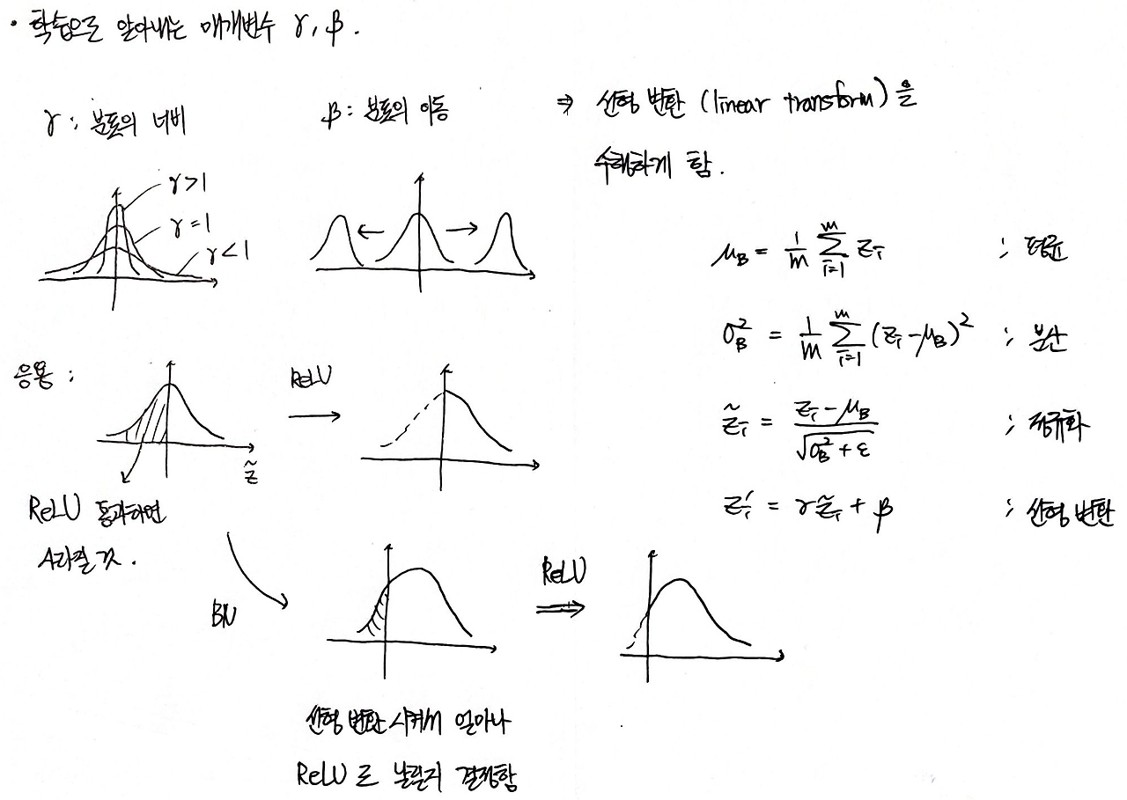 • 학습으로 알아내는 매개변수 γ, β.
γ : 분포의 너비
β : 분포의 이동
⇒ 선형 변환 (linear transform) 을
수행하게 함.
γ>1
γ=1
γ<1
μ_B = 1/m Σ_{i=1}^{m} z_i ; 평균
σ_B^2 = 1/m Σ_{i=1}^{m} (z_i - μ_B)^2 ; 분산
z̃_i = (z_i - μ_B) / √(σ_B^2 + ε) ; 정규화
z_i' = γz̃_i + β ; 선형 변환
응용 :
ReLU
z̃
ReLU 통과하면
사라질 것.
BN
ReLU
선형 변환 시켜서 얼마나
ReLU로 날릴지 결정함